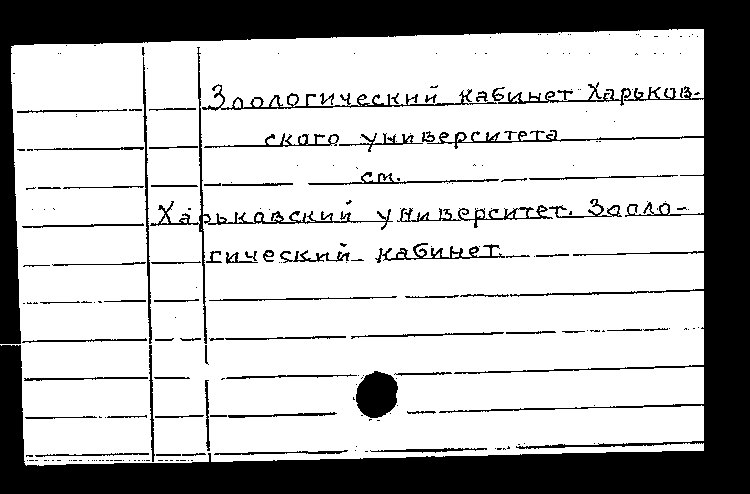 Зоологический кабинет Харьков-
ского университета
см.
Харьковский университет. Зооло-
гический кабинет.